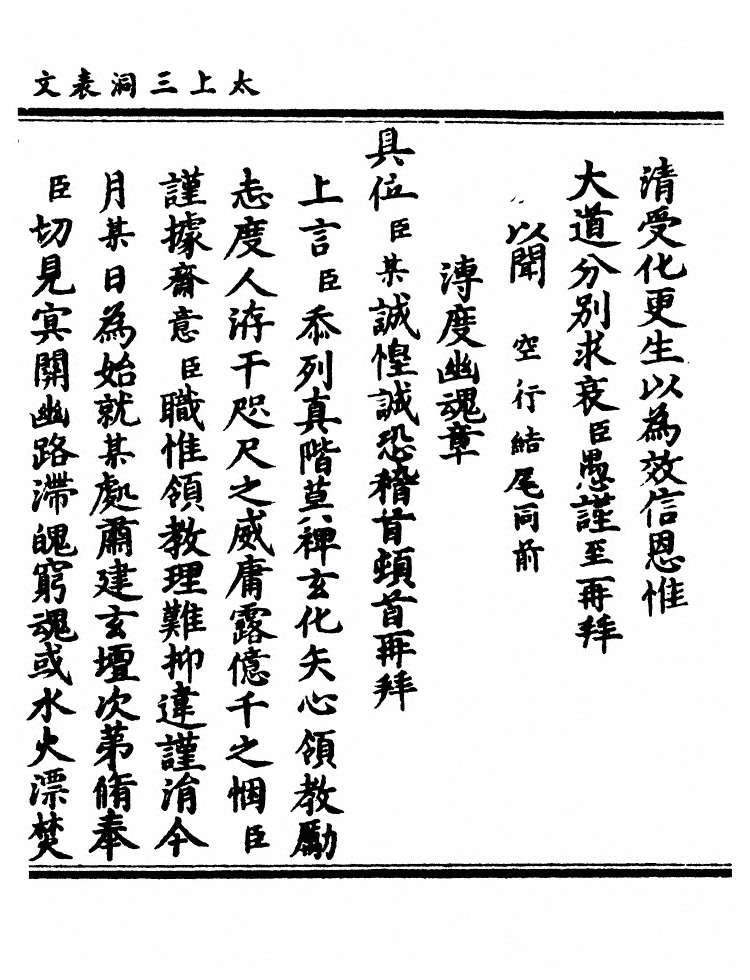 太上三洞表文
清受化更生以為效信恩惟
大道分別求哀臣愚謹至再拜
以聞 空行結尾同前
溥度幽魂章
具位臣某誠惶誠恐稽首頓首再拜
上言臣忝列真階莫裨玄化矢心領教勵
志度人洊干咫尺之威庸露億千之悃臣
謹據齋意臣職惟領教理難抑違謹涓今
月某日為始就某處肅建玄壇次第脩奉
臣切見冥關幽路滯魄窮魂或水火漂焚